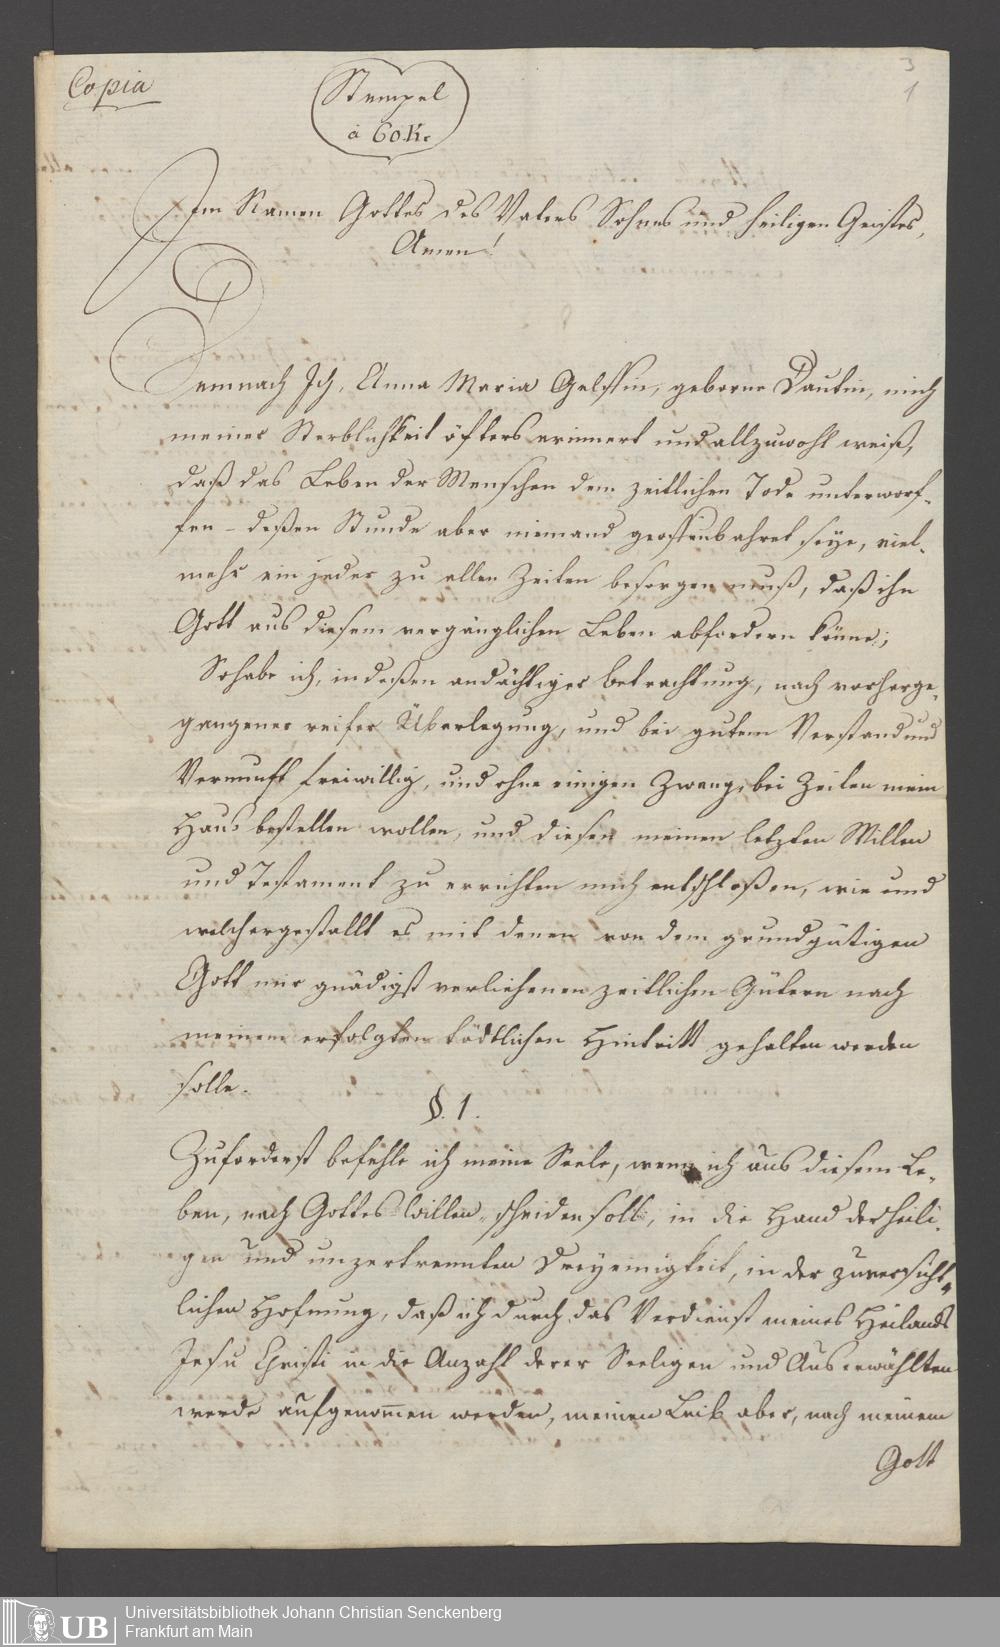 Copia
3
1
Stempel
à 60 Kr.
Im Namen Gottes des Vaters Sohnes und heiligen Geistes,
Amen!
Demnach Ich, Anna Maria Gelssin, geborne Dautin, mich
meiner Sterblichkeit öfters erinnert und allzuwohl weiß,
daß das Leben der Menschen dem zeitlichen Tode unterworf-
fen - deßen Stunde aber niemand geoffenbahret seye, viel-
mehr ein jeder zu allen Zeiten besorgen muß, daß ihn
Gott aus diesem vergänglichen Leben abfordern könne;
So habe ich, in deßen andächtiger Betrachtung, nach vorherge-
gangener reifer Überlegung, und bei gutem Verstand und
Vernunft freiwillig, und ohne einigen Zwang, bei Zeiten mein
Haus bestellen wollen, und diesen meinen letzten Willen
und Testament zu errichten mich entschloßen, wie und
welchergestallt es mit denen von dem grundgütigen
Gott mir gnädigst verliehenen zeitlichen Gütern nach
meinem erfolgten tödtlichen Hintritt gehalten werden
solle.
§. 1.
Zuforderst befehle ich meine Seele, wenn ich aus diesem Le-
ben, nach Gottes Willen, scheiden soll, in die Hand der heili-
gen und unzertrennten Dreyeinigkeit, in der zuversicht-
lichen Hofnung, daß ich durch das Verdienst meines Heilands
Jesu Christi in die Anzahl derer Seeligen und Auserwählten
werde aufgenom̄en werden, meinen Leib aber, nach meinem
Gott
UB
Universitätsbibliothek Johann Christian Senckenberg
Frankfurt am Main